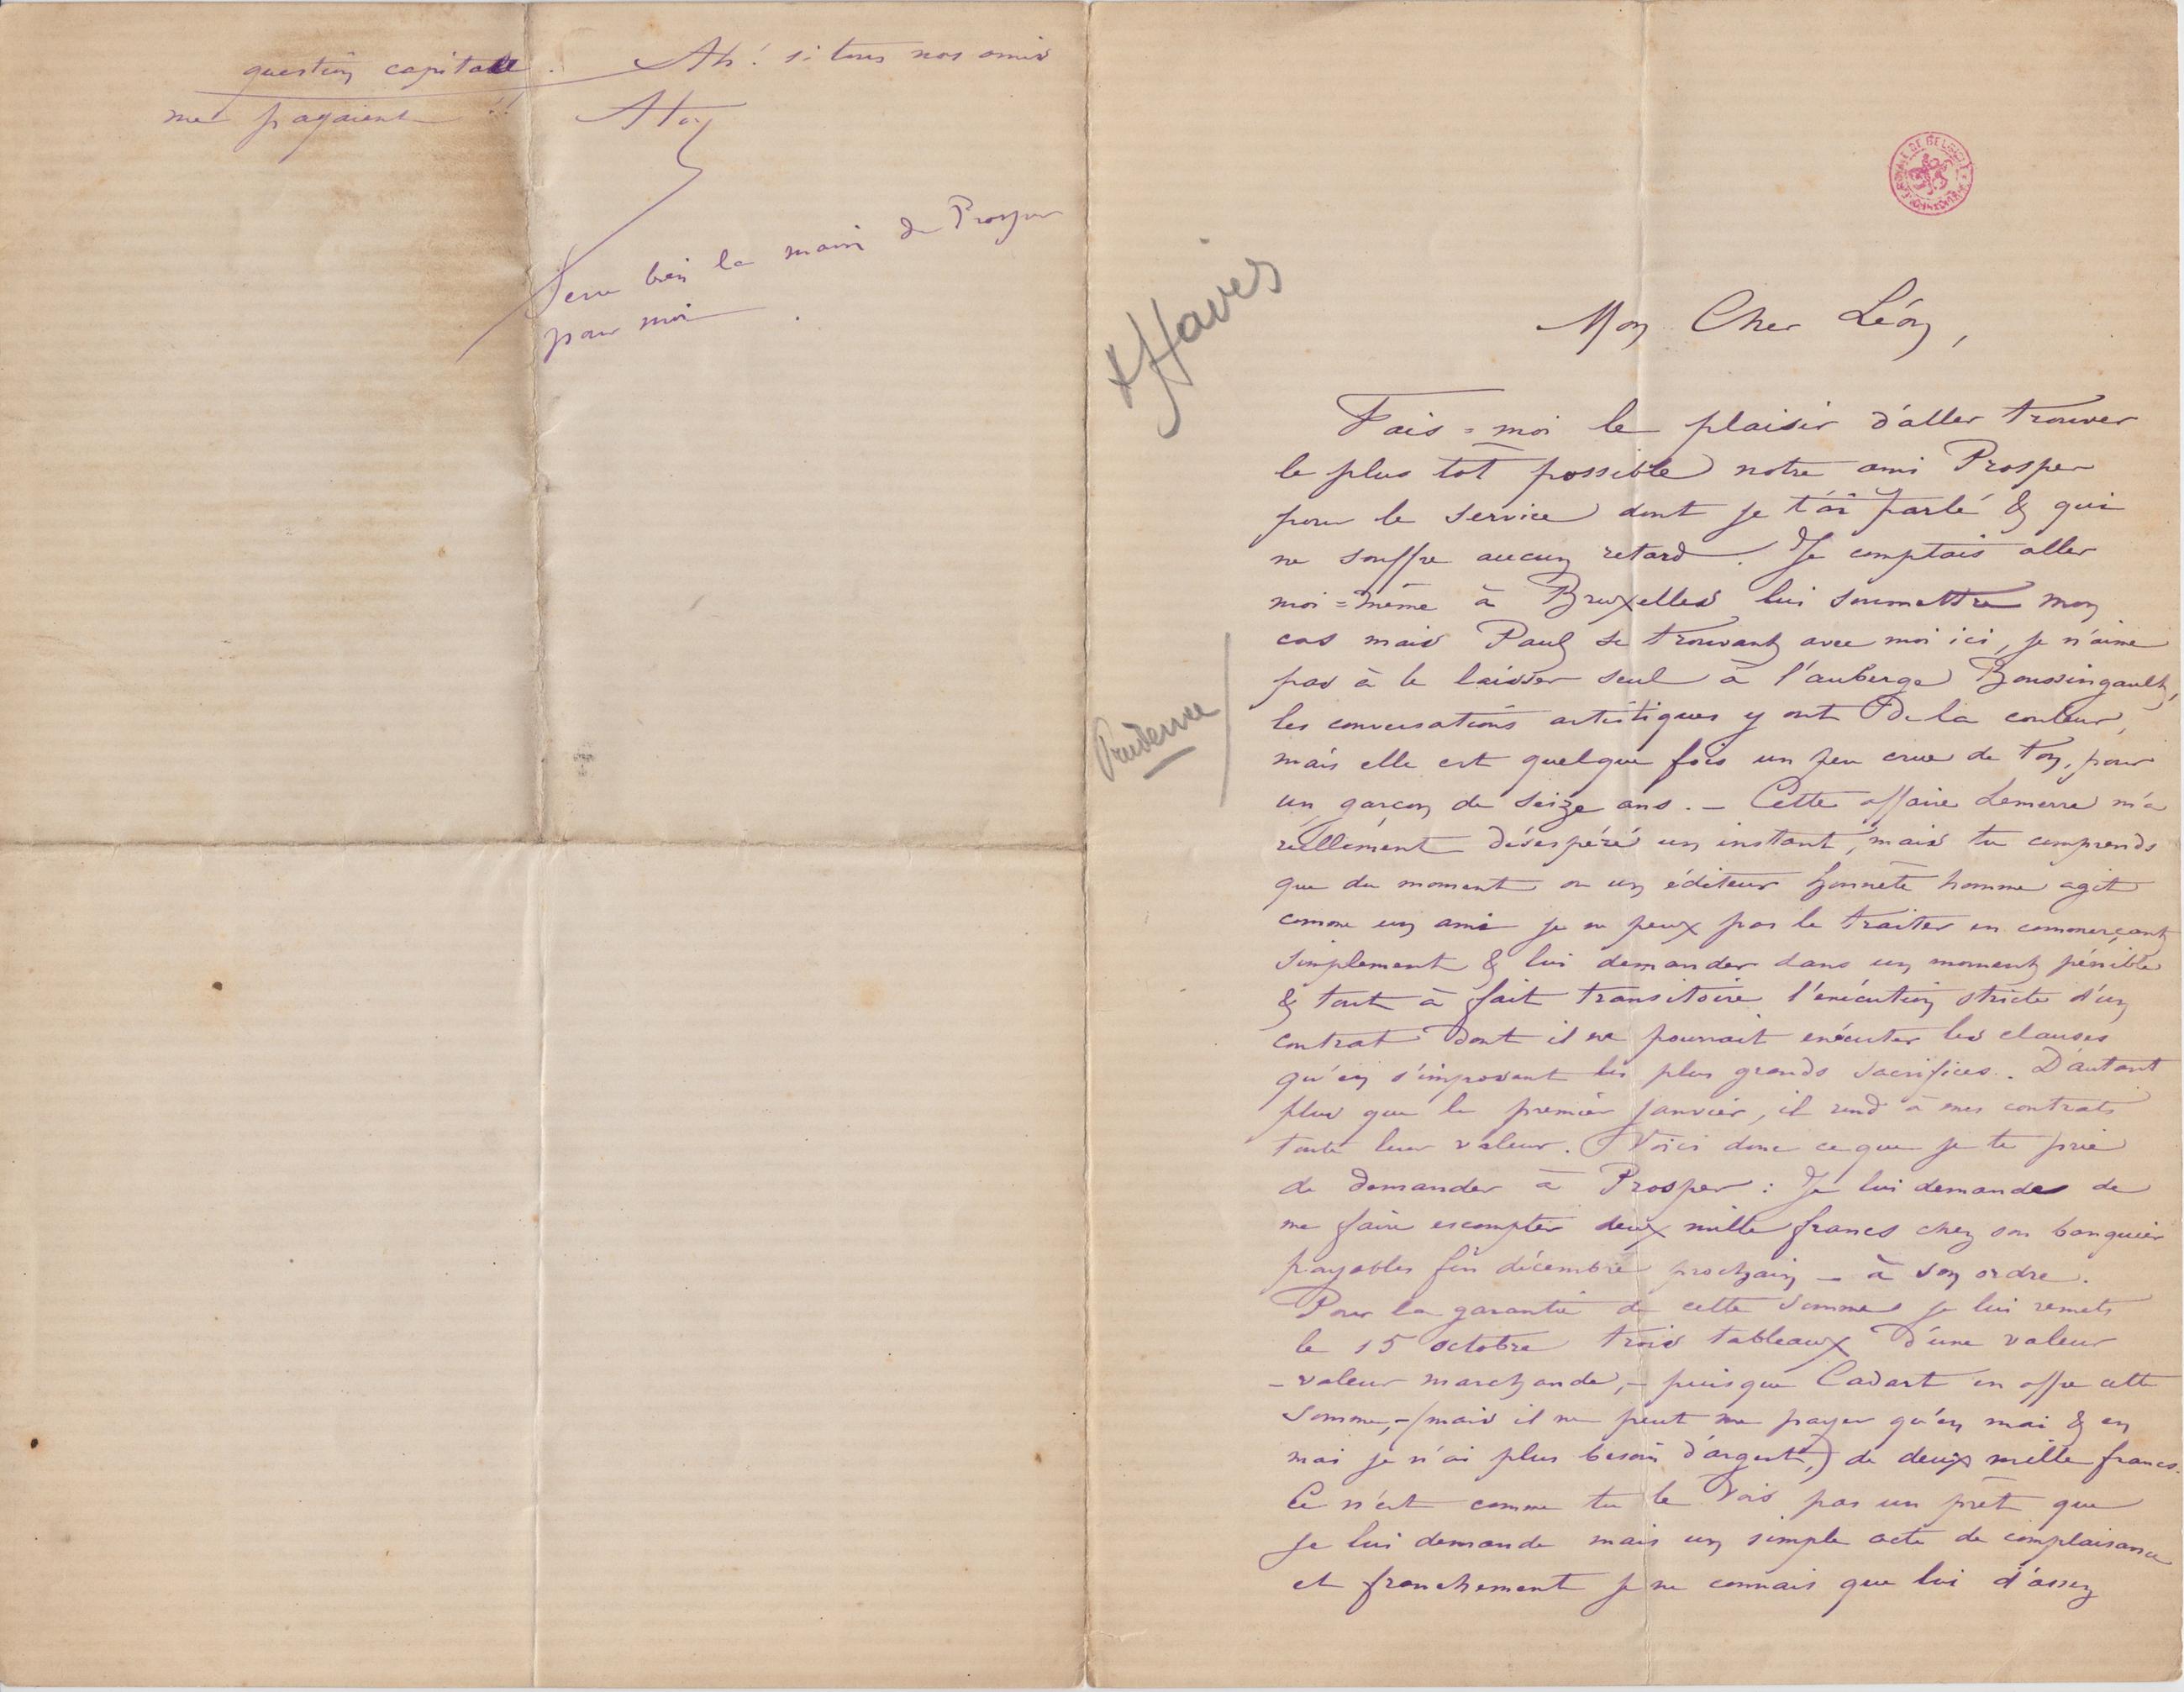 question capitale. Ah! si tous nos amis
me payaient!!
A toi
Serre bien la main de Prosper
pour moi.
Affaires
Mon Cher Léon,
Fais=moi le plaisir d'aller trouver
le plus tot possible notre ami Prosper
pour le service dont je t'ai parlé & qui
ne souffre aucun retard. Je comptais aller
moi=même à Bruxelles lui soumettre mon
cas mais Paul se trouvant avec moi ici, je n'aime
pas à le laisser seul à l'auberge Boussingault,
les conversations artistiques y ont de la couleur,
Prudence
mais elle est quelque fois un peu crue de ton, pour
un garçon de seize ans. – Cette affaire Lemerre m'a
réellement désespéré un instant, mais tu comprends
que du moment ou un éditeur honnête homme agit
comme un ami je ne peux pas le traiter en commerçant
simplement & lui demander dans un moment pénible
& tout à fait transitoire l'exécution stricte d'un
contrat dont il ne pourrait exécuter les clauses
qu'en s'imposant les plus grands sacrifices. D'autant
plus que le premier janvier, il rend à mes contrats
toute leur valeur. Voici donc ce que je te prie
de demander à Prosper : Je lui demande de
me faire escompter deux mille francs chez son banquier
payables fin décembre prochain – à son ordre.
Pour la garantie de cette somme je lui remets
le 15 octobre trois tableaux d'une valeur
– valeur marchande, – puisque Cadart en offre cette
somme, – (mais il ne peut me payer qu'en mai & en
mai je n'ai plus besoin d'argent,) de deux mille francs.
Ce n'est comme tu le vois pas un prêt que
je lui demande mais un simple acte de complaisance
et franchement je ne connais que lui d'assez